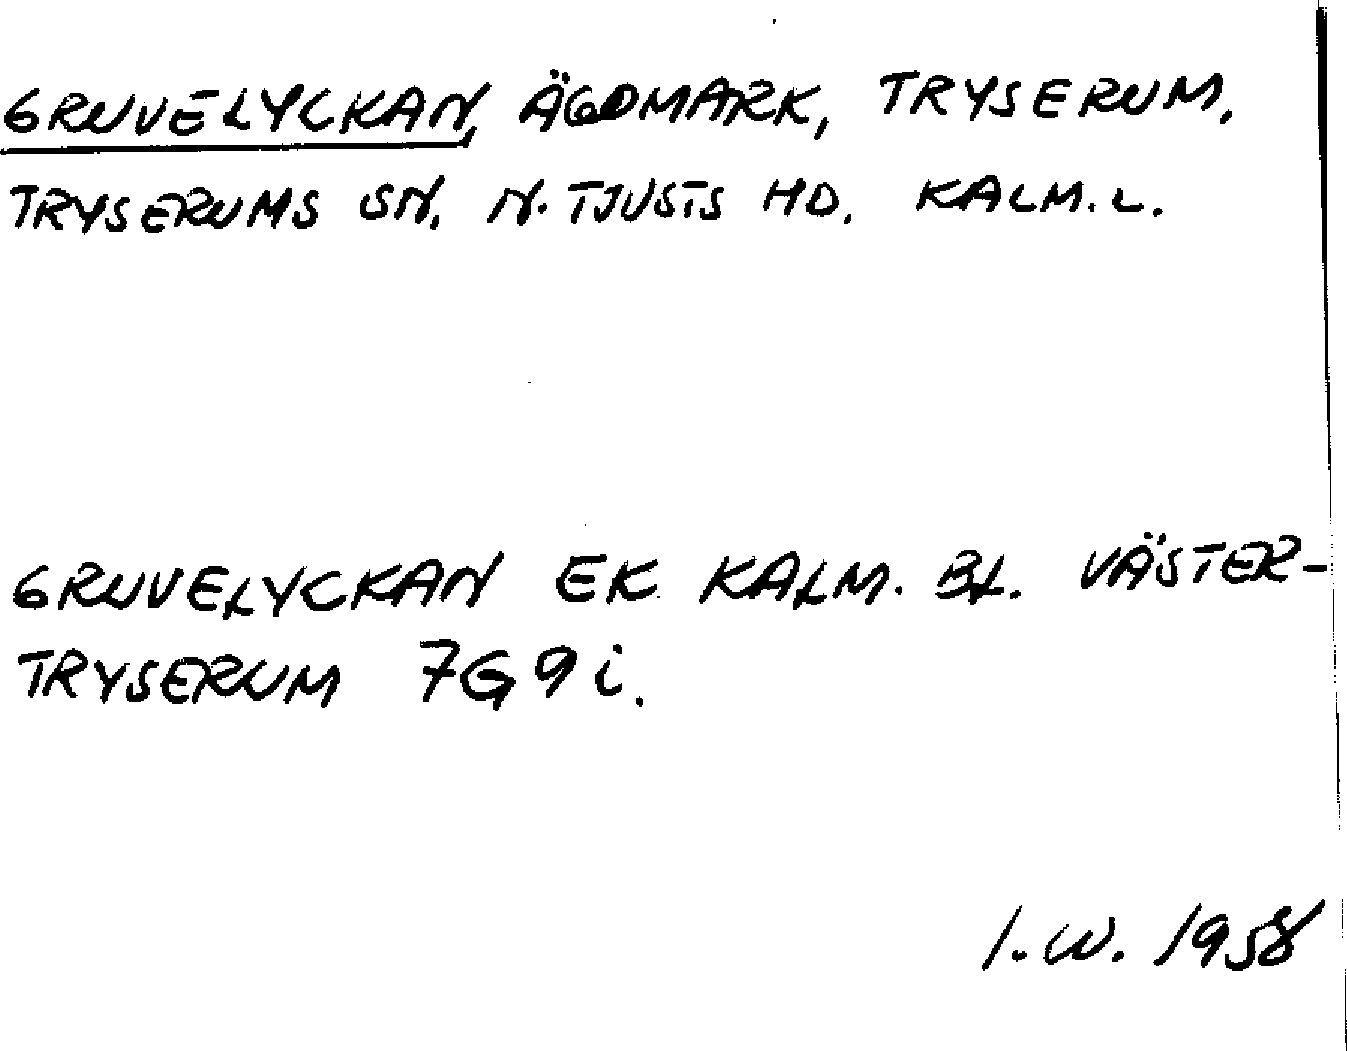 GRUVELYCKAN, ÄGOMARK, TRYSERUM,
TRYSERUMS SN. N. TJUSTS HD. KALM. L.
GRUVELYCKAN EK KALM. BL. VÄSTER-
TRYSERUM 7G9i.
I.W. 1958